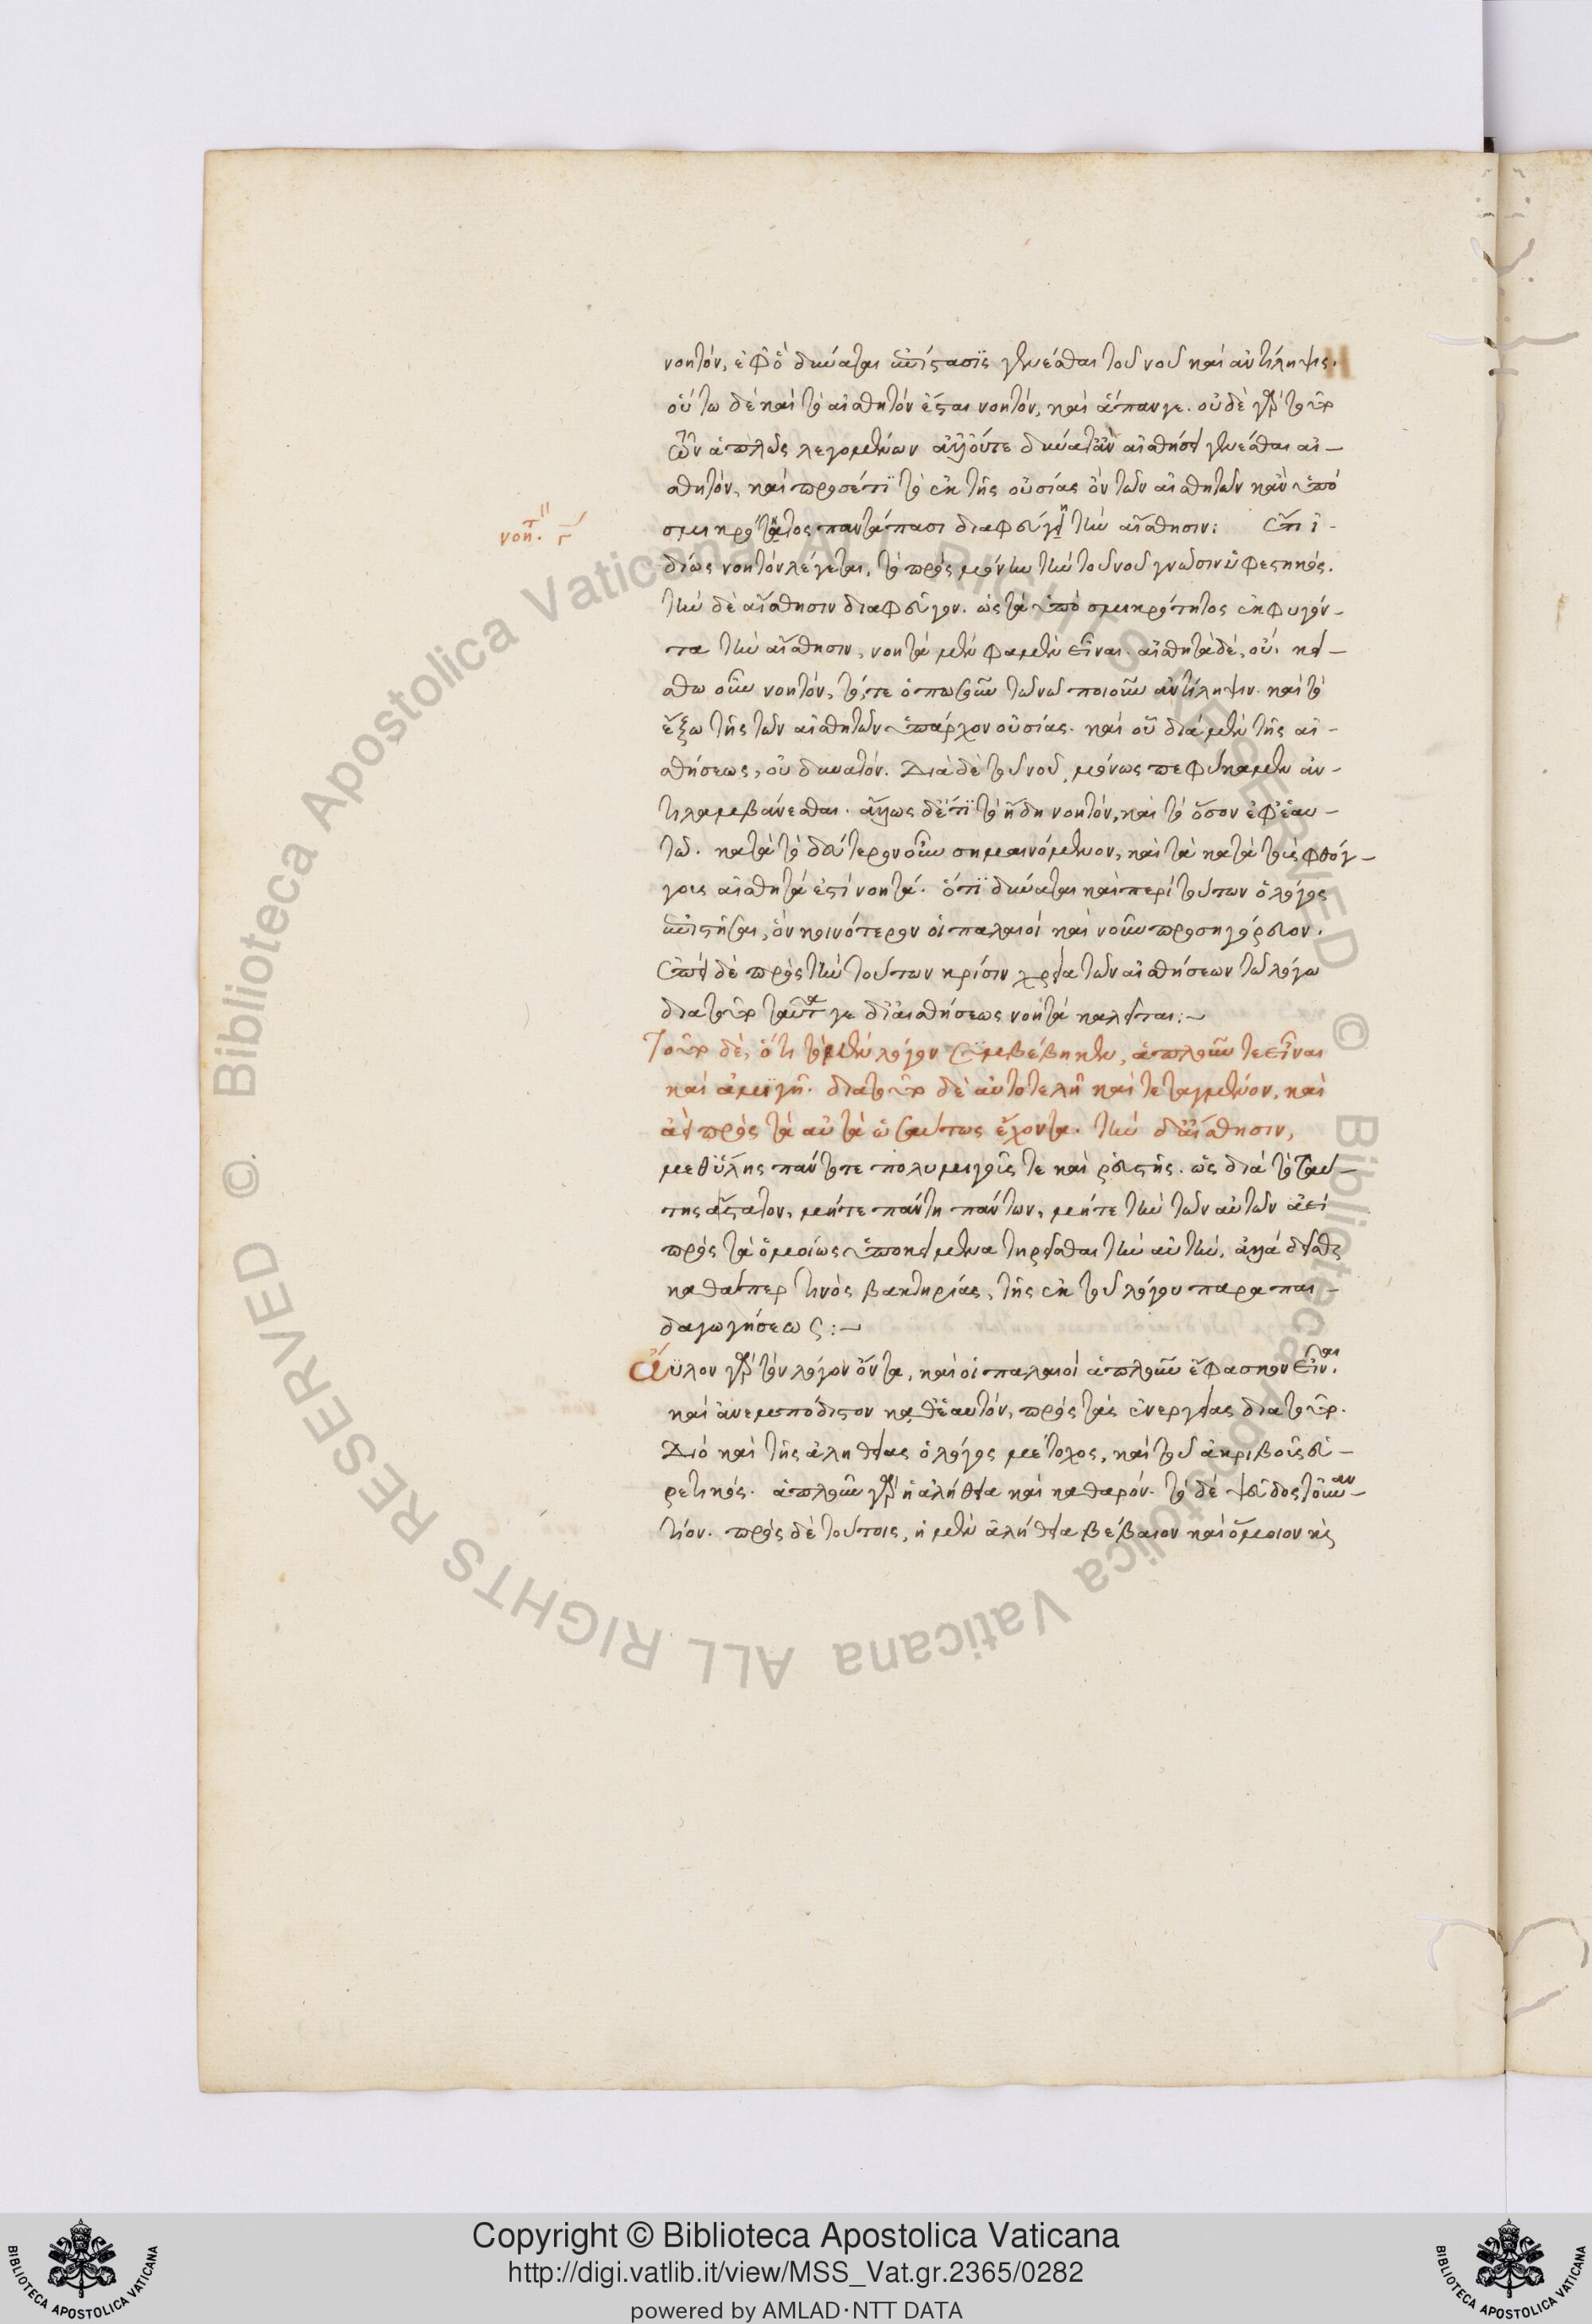 νοητόν, ἐφ' ὃ δύναται ἐπίστασις γενέσθαι τοῦ νοῦ καὶ ἀντίληψις.
οὕτω δὲ καὶ τὸ αἰσθητόν ἔσται νοητόν, καὶ ἅπαν γε. οὐδὲ γὰρ τοῦτο
ὧν ἁπλῶς λεγομένων ἀγνοοῦτε δύναται ἂν αἰσθήσει γενέσθαι αἰ-
σθητόν, καὶ προσέτι τὸ ἐκ τῆς οὐσίας ὂν τῶν αἰσθητῶν κἂν ὑπὸ
σμικρότητος παντάπασι διαφεύγῃ τὴν αἴσθησιν: ἔτι ἰ-
νοητ. γ
δίως νοητὸν λέγεται, τὸ πρὸς μόνην τὴν τοῦ νοῦ γνῶσιν ὑφεστηκός.
τὴν δὲ αἴσθησιν διαφεῦγον. ὡς τὰ ὑπὸ σμικρότητος ἐκφυγόν-
τα τὴν αἴσθησιν, νοητὰ μὲν φαμὲν εἶναι. αἰσθητὰ δὲ, οὔ. κεί-
σθω οὖν νοητόν, τό, τε ὁπωσοῦν τῷ νῷ ποιοῦν ἀντίληψιν. καὶ τὸ
ἔξω τῆς τῶν αἰσθητῶν ὑπάρχον οὐσίας. καὶ οὗ διὰ μὲν τῆς αἰ-
σθήσεως, οὐ δυνατόν. Διὰ δὲ τοῦ νοῦ, μόνως πεφύκαμεν ἀν-
τιλαμβάνεσθαι. ἄλλως δὲ ἔτι τὸ ἤδη νοητόν, καὶ τὸ ὅσον ἐφ' ἑαυ-
τῷ. κατὰ τὸ δεύτερον οὖν σημαινόμενον, καὶ τὰ κατὰ τοὺς φθόγ-
γους αἰσθητά ἐστι νοητά. ὅτι δύναται καὶ περὶ τούτων ὁ λόγος
ἐπιστῆσαι, ὃν κοινότερον οἱ παλαιοὶ καὶ νοῦν προσηγόρευον.
ἐπεὶ δὲ πρὸς τὴν τούτων κρίσιν χρεία τῶν αἰσθήσεων τῷ λόγῳ
διατοῦτο ταῦτά γε δι' αἰσθήσεως νοητὰ καλεῖται:~
Τοῦτο δὲ, ὅτι τὸν μὲν λόγον συμβέβηκεν, ἁπλοῦν τε εἶναι
καὶ ἀμιγῆ. διατοῦτο δὲ αὐτοτελῆ καὶ τεταγμένον, καὶ
ἀεὶ πρὸς τὰ αὐτὰ ὡσαύτως ἔχοντα. τὴν δ' αἴσθησιν,
μεθ' ὕλης πάντοτε πολυμιγοῦς τε καὶ ῥευστῆς. ὡς διὰ τὸ ταύ-
της ἄστατον, μήτε πάντη πάντων, μήτε τὴν τῶν αὐτῶν ἀεὶ
πρὸς τὰ ὁμοίως ὑποκείμενα τηρεῖσθαι τὴν αὐτὴν, ἀλλὰ δεῖσθαι
καθάπερ τινὸς βακτηρίας, τῆς ἐκ τοῦ λόγου παραπαι-
δαγωγήσεως:~
Ἄϋλον γὰρ τὸν λόγον ὄντα, καὶ οἱ παλαιοὶ ἁπλοῦν ἔφασκον εἶναι.
καὶ ἀνεμπόδιστον καθ' ἑαυτόν, πρὸς τὰς ἐνεργείας διατοῦτο.
Διὸ καὶ τῆς ἀληθείας ὁ λόγος μέτοχος, καὶ τοῦ ἀκριβοῦς εὑ-
ρετικός. ἁπλοῦν γὰρ ἡ ἀλήθεια καὶ καθαρόν. τὸ δὲ ψεῦδος τοὐναν-
τίον. πρὸς δὲ τούτοις, ἡ μὲν ἀλήθεια βέβαιον καὶ ὅμοιον καὶ
Copyright © Biblioteca Apostolica Vaticana
http://digi.vatlib.it/view/MSS_Vat.gr.2365/0282
powered by AMLAD·NTT DATA